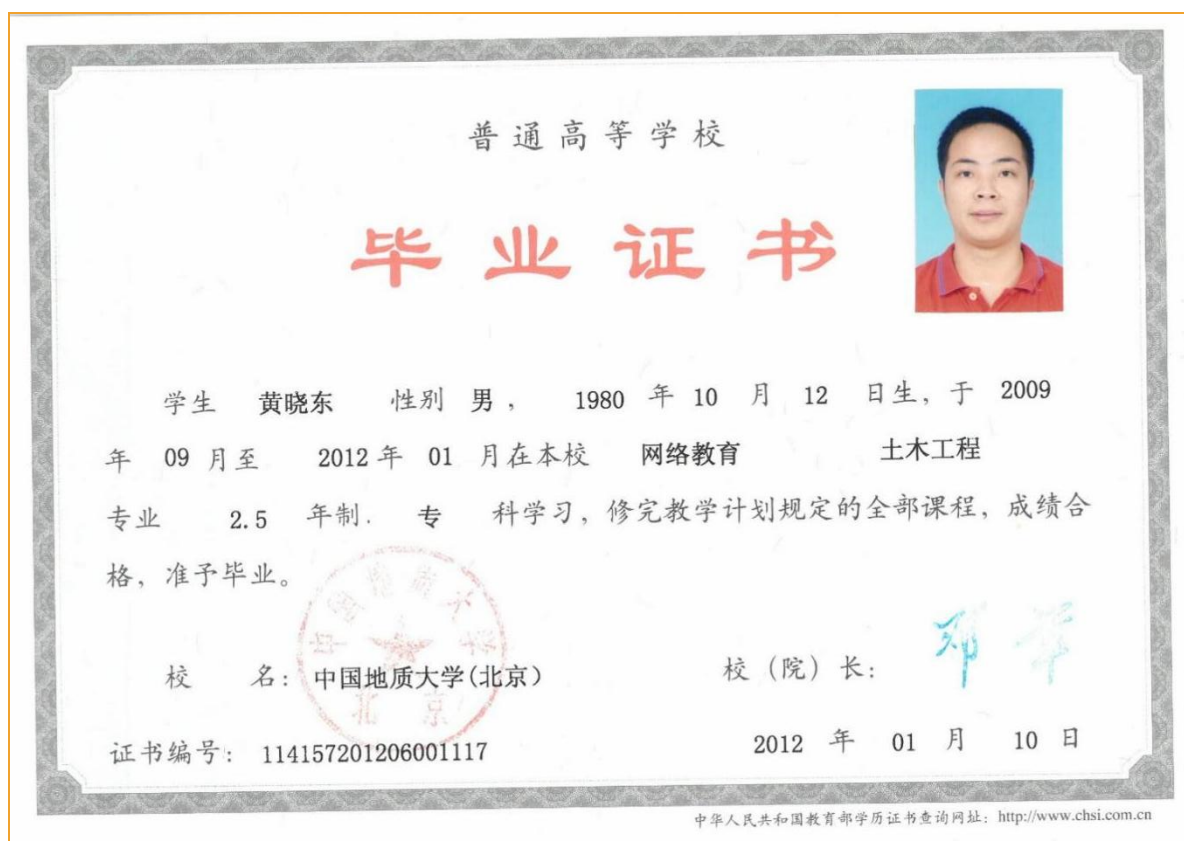 普通高等学校
毕业证书
学生 黄晓东 性别 男， 1980 年 10 月 12 日生，于 2009
年 09 月至 2012 年 01 月在本校 网络教育 土木工程
专业 2.5 年制. 专 科学习，修完教学计划规定的全部课程，成绩合
格，准予毕业。
中国地质大学
北京
校 名：中国地质大学(北京) 校（院）长：邓军
证书编号：114157201206001117 2012 年 01 月 10 日
中华人民共和国教育部学历证书查询网址：http://www.chsi.com.cn